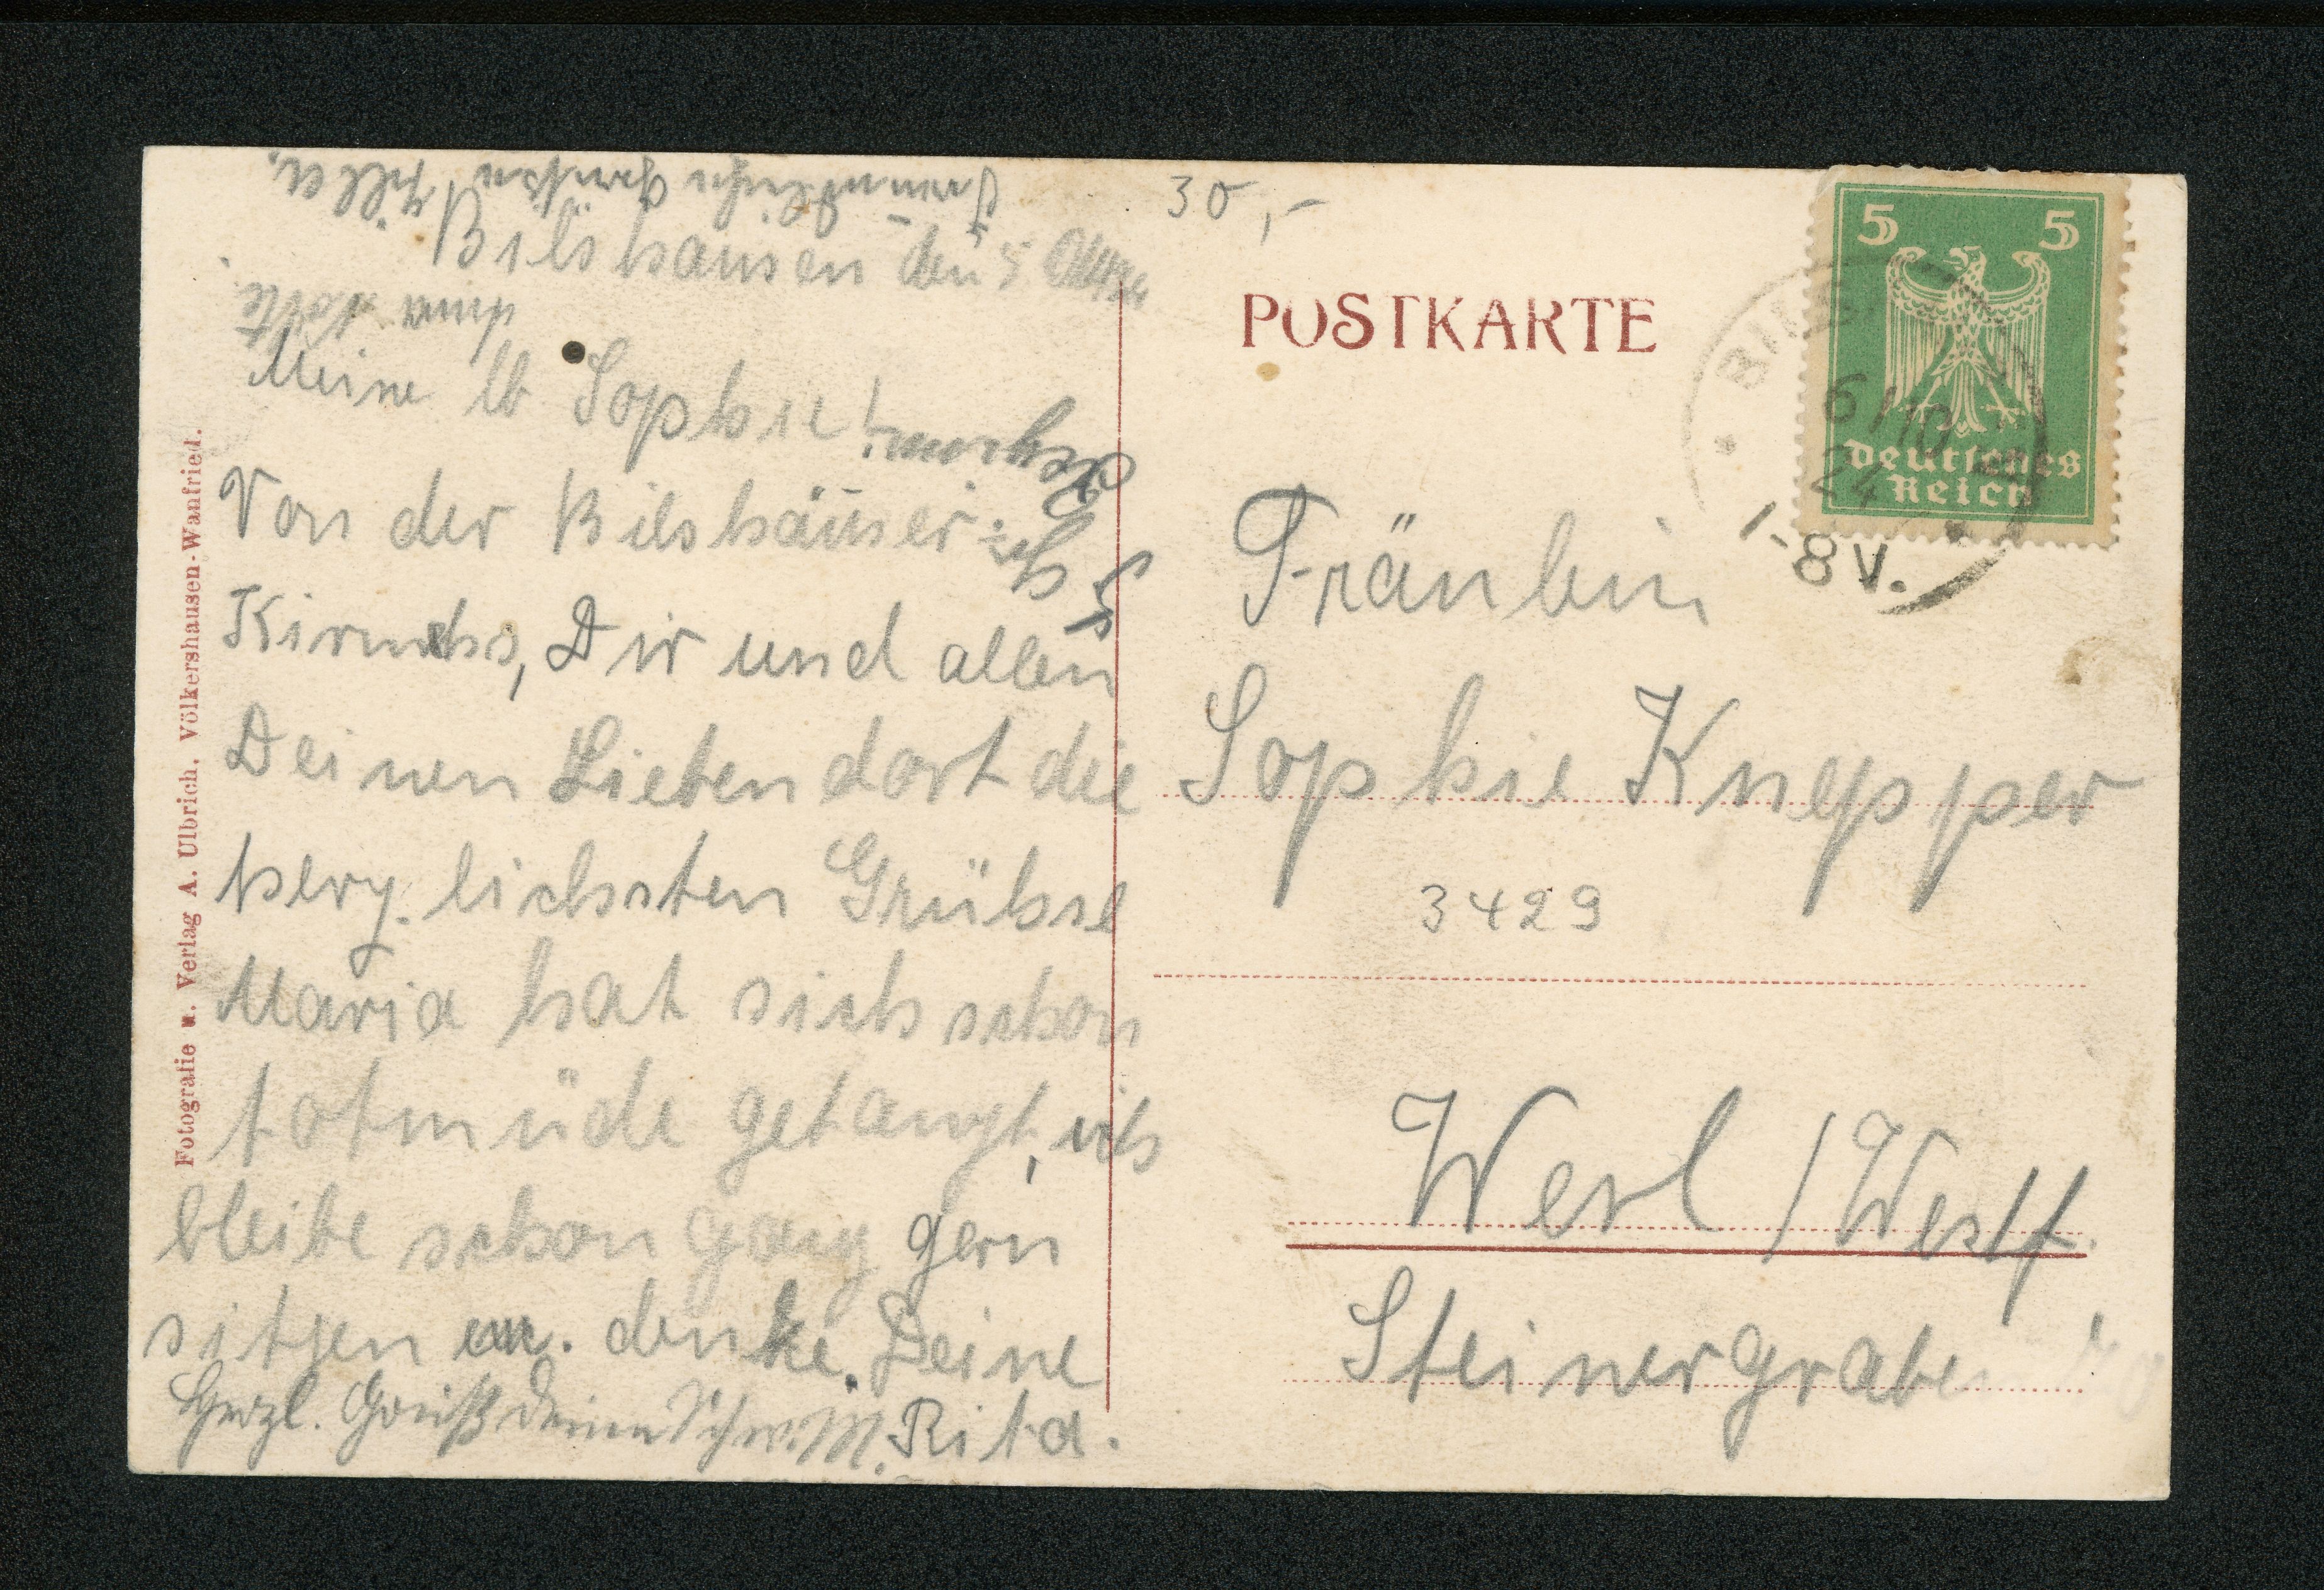 Freundliche Grüße
Bilshausen den 5 Oktober
Anna Nolte.
Meine lb Sophie!
Von der Bilshäuser-
Kirmehs, Dir und allen
Deinen Lieben dort die
herz. lichsten Grühse
Maria hat sich schon
totmüde getanzt, ich
bleibe schon ganz gern
sitzen denke. Deine
Herzl. Gruß deinen Schw. M. Rita.
Fotografie u. Verlag A. Ulbrich, Völkershausen-Wanfried.
30,-
POSTKARTE
5 5
Deutsches
Reich
BILS
6/10
24
7-8 V.
Fräulein
Sophie Knepper
3429
Werl / Westf.
Steinergraben